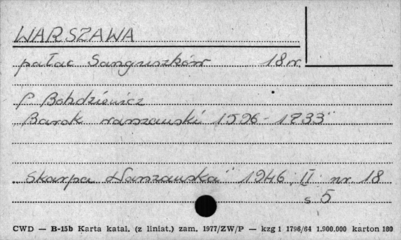 WARSZAWA
pałac Sanguszków 18 w.
P Bohdziewicz
Barok warszawski 1596 - 1733"
"Skarpa Warszawska" 1946, II nr 18
s 5
CWD — B-15b Karta katal. (z liniat.) zam. 1977/ZW/P — kzg 1 1796/64 1.900.000 karton 100